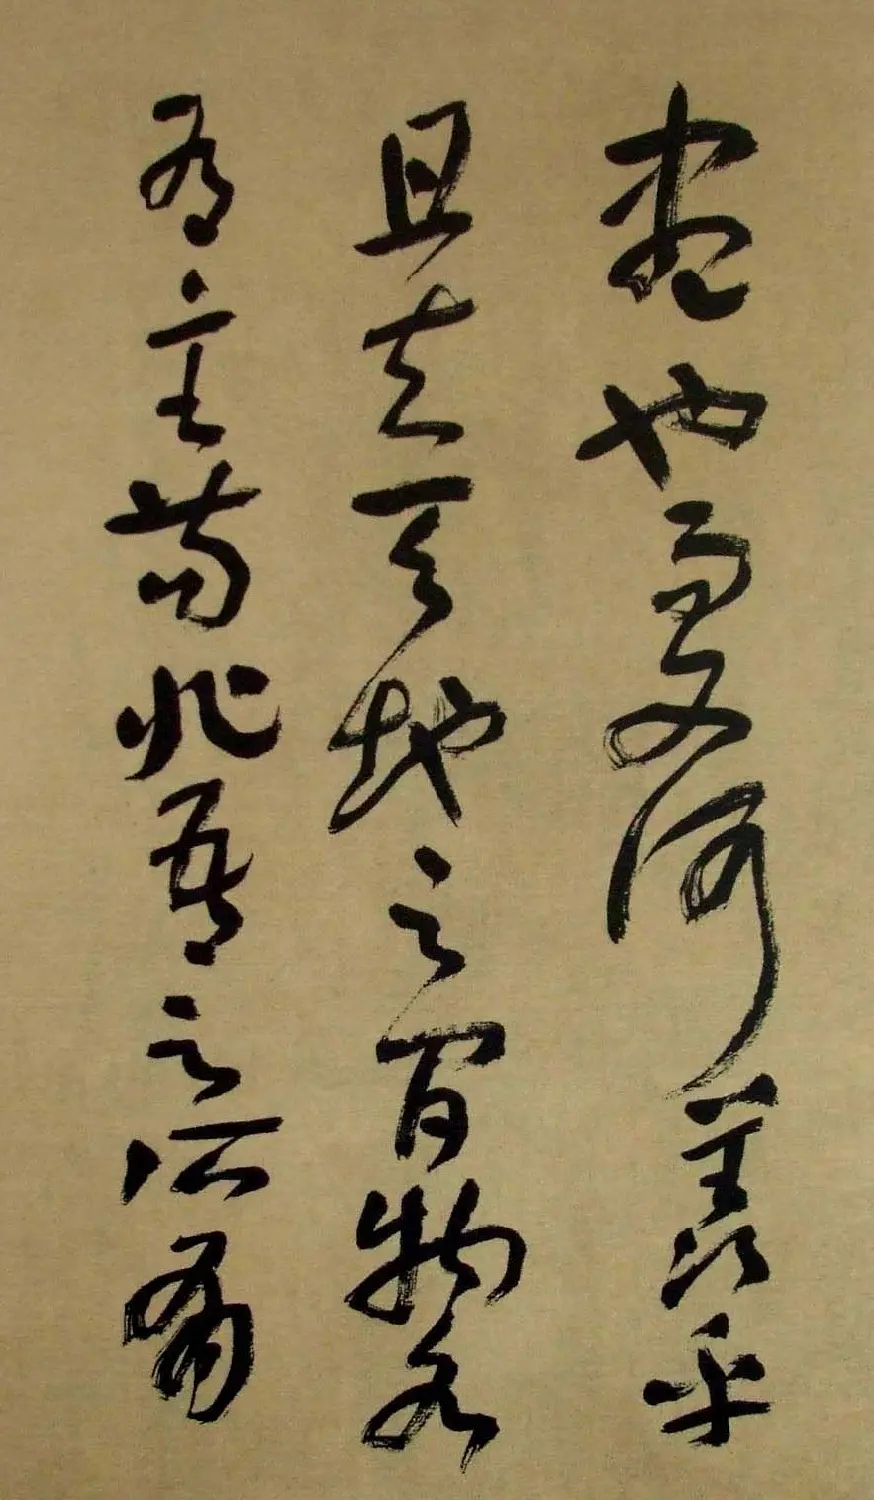 盡也而又何羨乎
且夫天地之間物各
有主苟非吾之所有